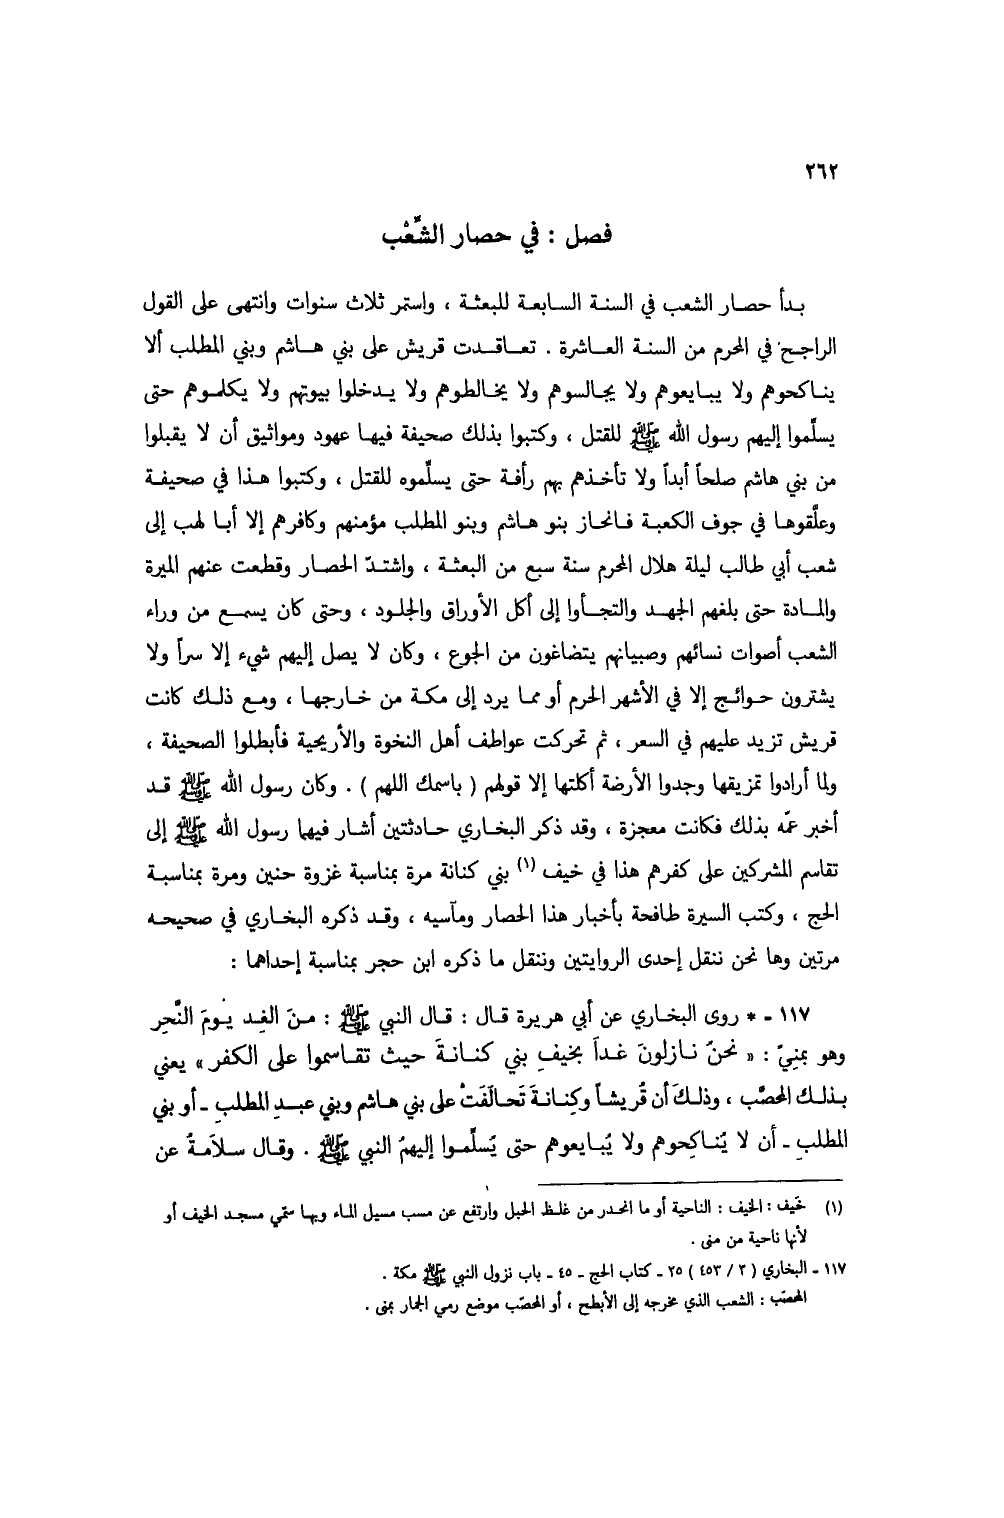 ٢٦٢
فصل : في حصار الشِّعْب
بدأ حصار الشعب في السنة السابعة للبعثة ، واستمر ثلاث سنوات وانتهى على القول
الراجح في المحرم من السنة العاشرة . تعاقدت قريش على بني هاشم وبني المطلب ألا
يناكحوهم ولا يبايعوهم ولا يجالسوهم ولا يخالطوهم ولا يدخلوا بيوتهم ولا يكلموهم حتى
يسلّموا إليهم رسول الله ﷺ للقتل ، وكتبوا بذلك صحيفة فيها عهود ومواثيق أن لا يقبلوا
من بني هاشم صلحاً أبداً ولا تأخذهم بهم رأفة حتى يسلّموه للقتل ، وكتبوا هذا في صحيفة
وعلّقوها في جوف الكعبة فانحاز بنو هاشم وبنو المطلب مؤمنهم وكافرهم إلا أبا لهب إلى
شعب أبي طالب ليلة هلال المحرم سنة سبع من البعثة ، واشتدّ الحصار وقطعت عنهم الميرة
والمادة حتى بلغهم الجهد والتجأوا إلى أكل الأوراق والجلود ، وحتى كان يسمع من وراء
الشعب أصوات نسائهم وصبيانهم يتضاغون من الجوع ، وكان لا يصل إليهم شيء إلا سراً ولا
يشترون حوائج إلا في الأشهر الحرم أو مما يرد إلى مكة من خارجها ، ومع ذلك كانت
قريش تزيد عليهم في السعر ، ثم تحركت عواطف أهل النخوة والأريحية فأبطلوا الصحيفة ،
ولما أرادوا تمزيقها وجدوا الأرضة أكلتها إلا قولهم ( باسمك اللهم ) . وكان رسول الله ﷺ قد
أخبر عمّه بذلك فكانت معجزة ، وقد ذكر البخاري حادثتين أشار فيهما رسول الله ﷺ إلى
تقاسم المشركين على كفرهم هذا في خيف (١) بني كنانة مرة بمناسبة غزوة حنين ومرة بمناسبة
الحج ، وكتب السيرة طافحة بأخبار هذا الحصار ومآسيه ، وقد ذكره البخاري في صحيحه
مرتين وها نحن ننقل إحدى الروايتين وننقل ما ذكره ابن حجر بمناسبة إحداهما :
١١٧ - * روى البخاري عن أبي هريرة قال : قال النبي ﷺ : منَ الغد يومَ النَّحرِ
وهو بمنىً : « نحنُ نازلونَ غداً بخيفِ بني كنانةَ حيث تقاسموا على الكفر » يعني
بذلك المحصَّب ، وذلكَ أن قُريشاً وكِنانةَ تَحالَفَتْ على بني هاشم وبني عبدِ المطلبِ ـ أو بني
المطلبِ ـ أن لا يُناكِحوهم ولا يُبايعوهم حتى يَسلِّموا إليهمُ النبي ﷺ . وقال سلامةُ عن
(١) خَيف : الخيف : الناحية أو ما انحدر من غلظ الجبل وارتفع عن مسب مسيل الماء وبها سمّي مسجد الخيف أو
لأنها ناحية من منى .
١١٧ ـ البخاري ( ٣ / ٤٥٣ ) ٢٥ ـ كتاب الحج ـ ٤٥ ـ باب نزول النبي ﷺ مكة .
المحصّب : الشعب الذي مخرجه إلى الأبطح ، أو المحصّب موضع رمي الجمار بمنى .